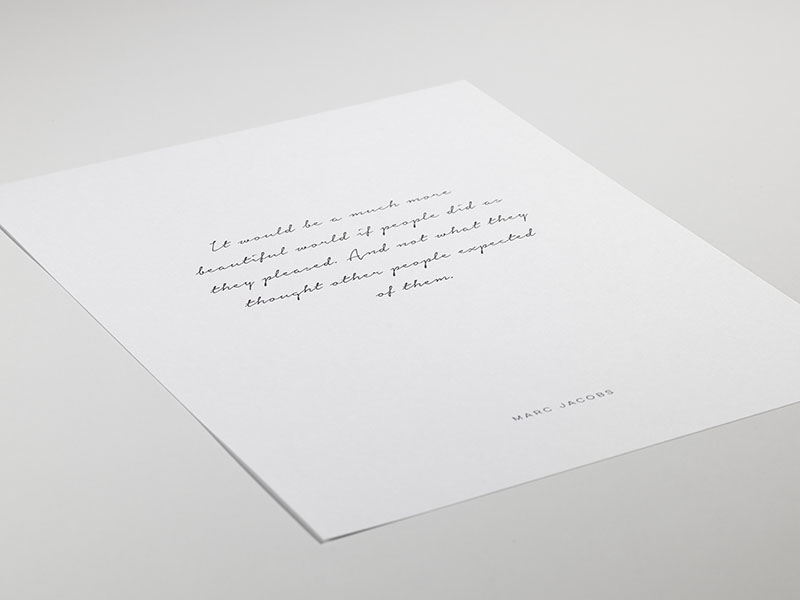 It would be a much more
beautiful world if people did as
they pleased. And not what they
thought other people expected
of them.
MARC JACOBS